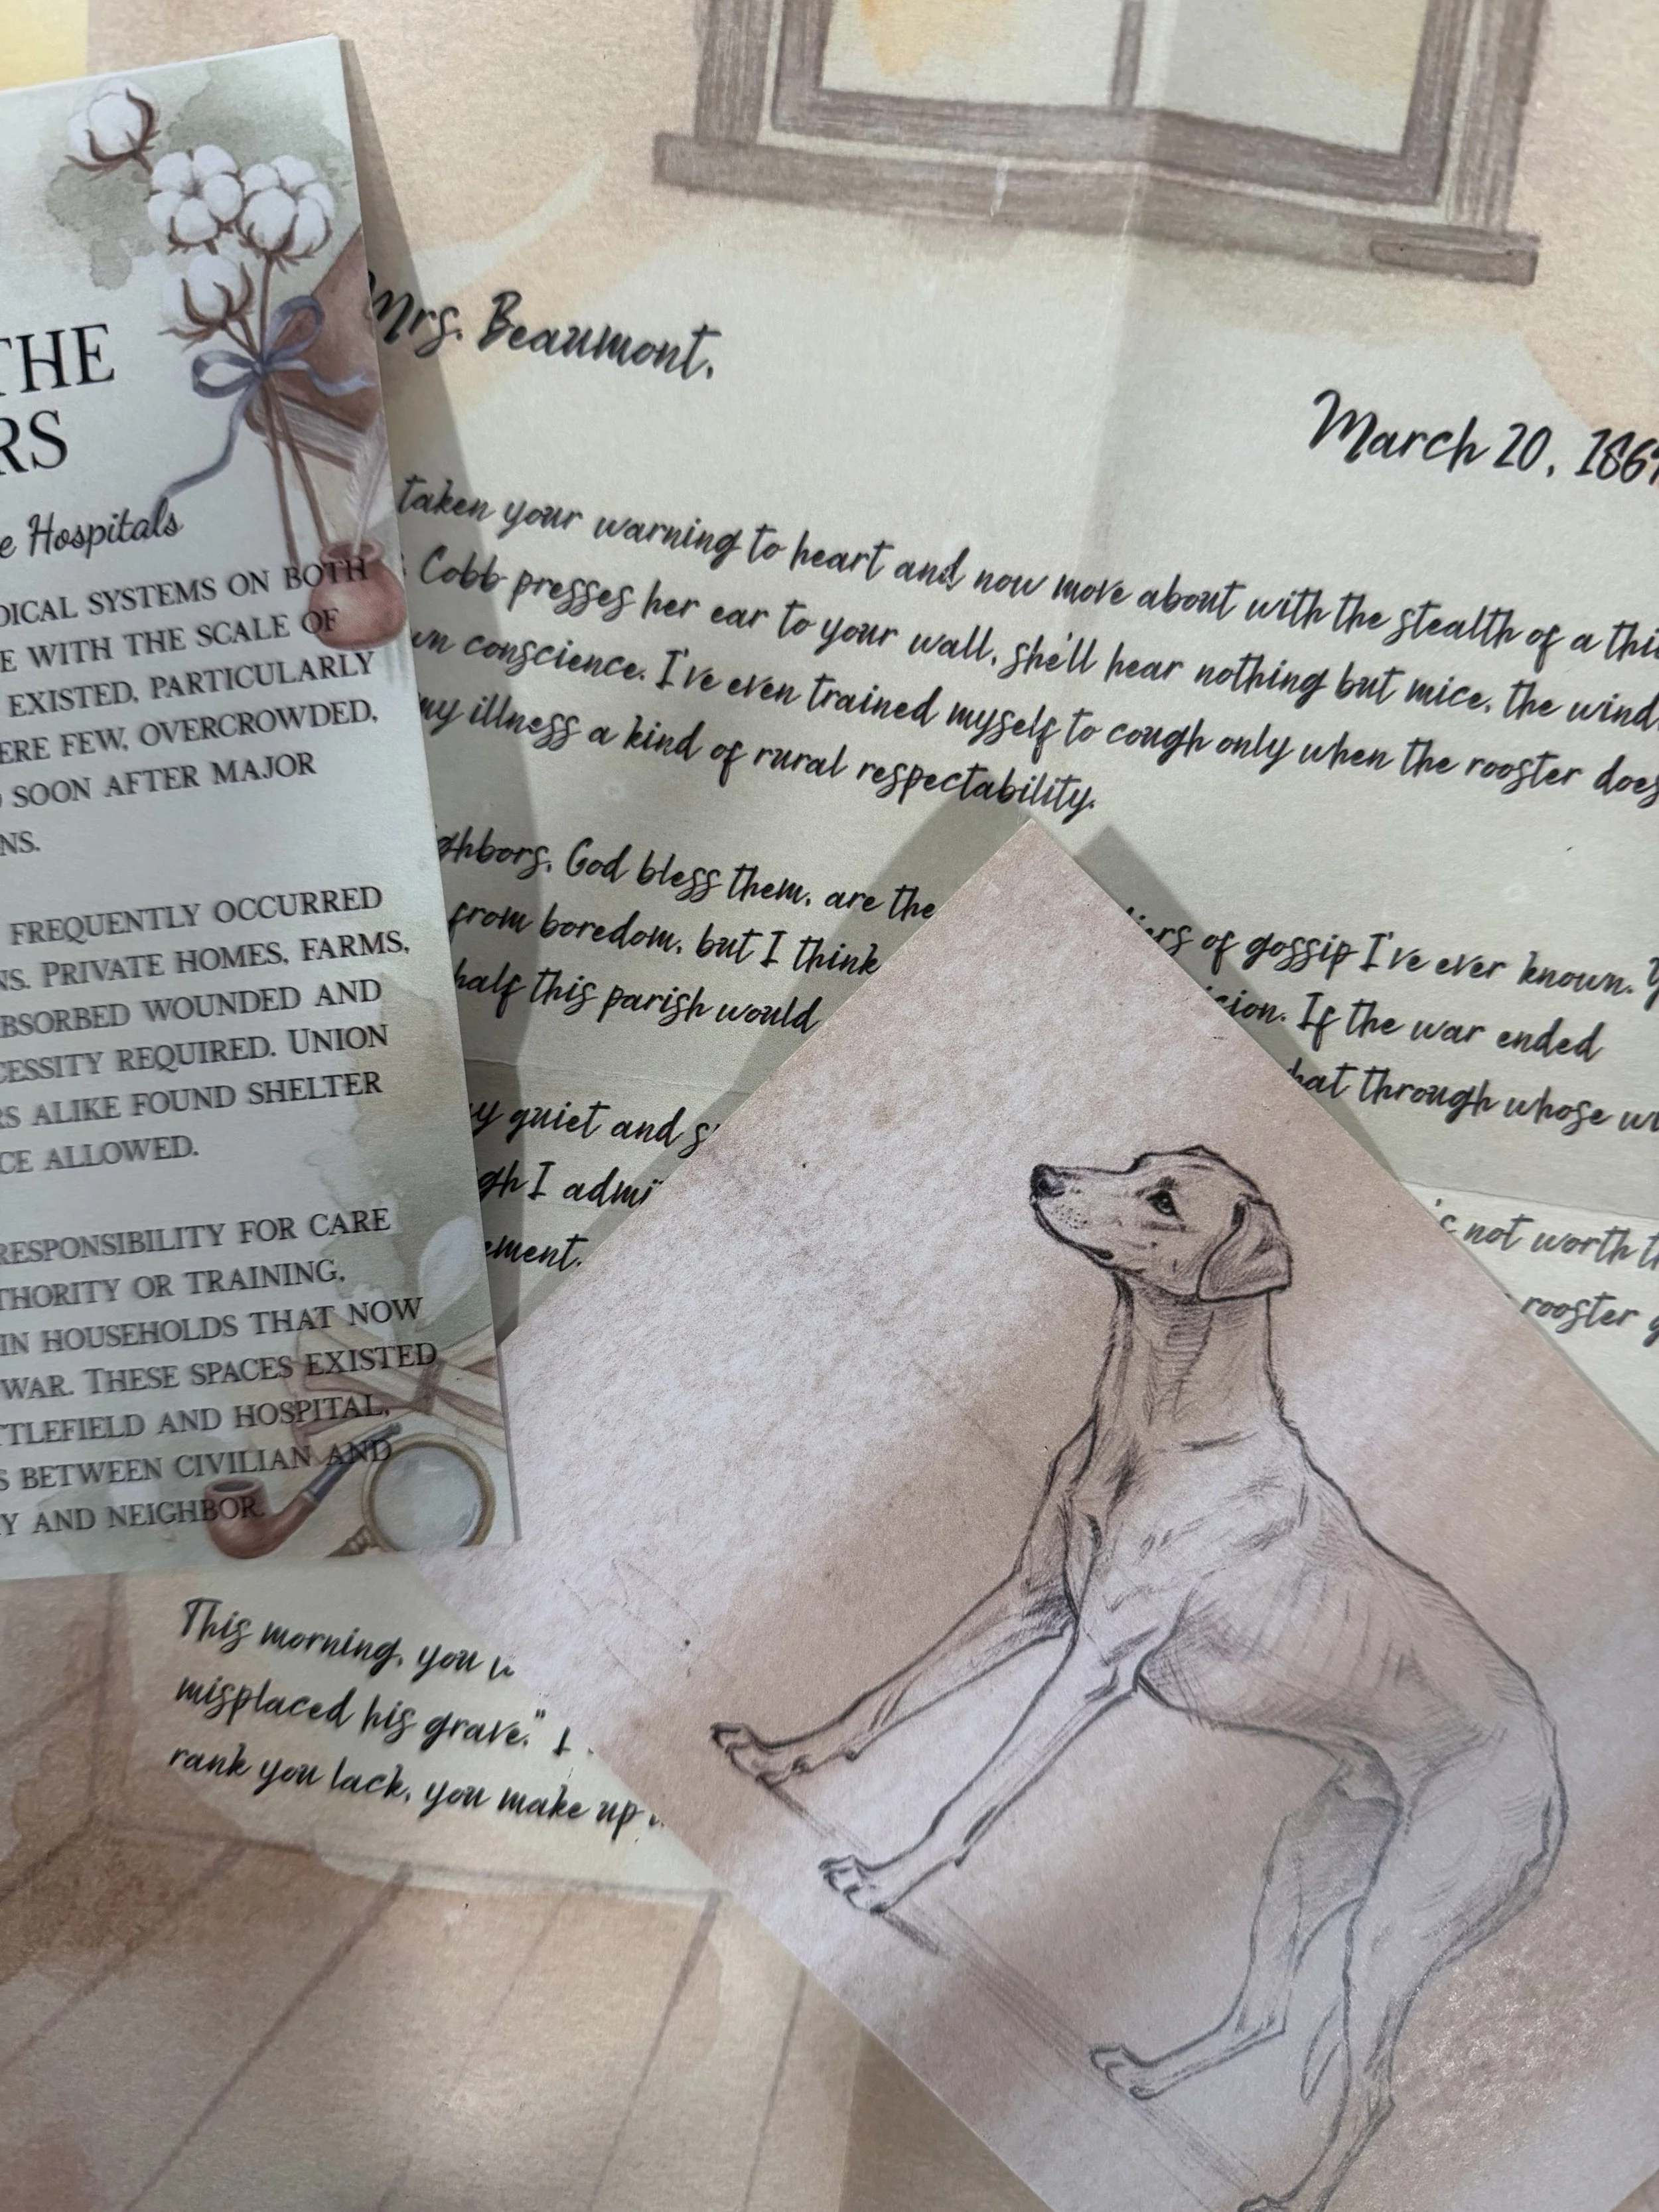 THE
RS
e Hospitals
DICAL SYSTEMS ON BOTH
E WITH THE SCALE OF
EXISTED, PARTICULARLY
ERE FEW, OVERCROWDED,
SOON AFTER MAJOR
NS.
FREQUENTLY OCCURRED
NS. PRIVATE HOMES, FARMS,
BSORBED WOUNDED AND
CESSITY REQUIRED. UNION
RS ALIKE FOUND SHELTER
CE ALLOWED.
RESPONSIBILITY FOR CARE
THORITY OR TRAINING,
IN HOUSEHOLDS THAT NOW
WAR. THESE SPACES EXISTED
TTLEFIELD AND HOSPITAL,
S BETWEEN CIVILIAN AND
Y AND NEIGHBOR.
Mrs. Beaumont,
March 20, 186
taken your warning to heart and now move about with the stealth of a thi
Cobb presses her ear to your wall, she'll hear nothing but mice, the wind,
wn conscience. I've even trained myself to cough only when the rooster does
my illness a kind of rural respectability.
ghbors, God bless them, are the iers of gossip I've ever known. Y
from boredom, but I think icion. If the war ended
half this parish would hat through whose wi
y quiet and s not worth th
gh I admi rooster g
ement.
This morning, you w
misplaced his grave." I
rank you lack, you make up